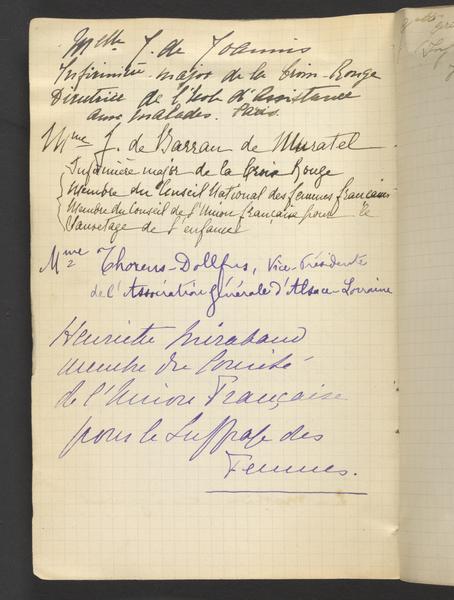 Melle J. de Joannis
Infirmière-major de la Croix-Rouge
Directrice de l'École d'Assistance
aux malades. Paris.
Mme J. de Barrau de Muratel
Infirmière major de la Croix Rouge
Membre du Conseil National des femmes françaises
Membre du Conseil de l'Union française pour le
Sauvetage de l'enfance
Mme Thorens-Dollfus, Vice-Présidente
de l'Association générale d'Alsace-Lorraine
Henriette Mirabaud
membre du Comité
de l'Union Française
pour le Suffrage des
Femmes.